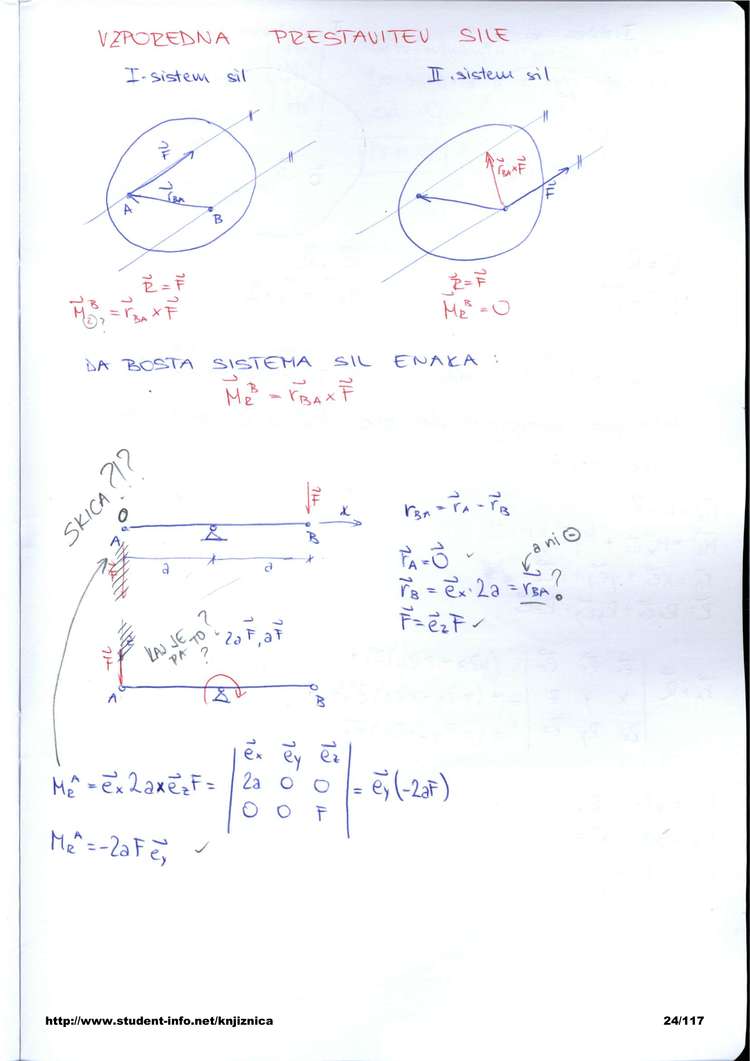 VZPOREDNA PRESTAVITEV SILE
I. sistem sil
II. sistem sil
F
r_BA
A
B
r_BA × F
F
R = F
M_R^B = r_BA × F
?
R = F
M_R^B = 0
DA BOSTA SISTEMA SIL ENAKA :
M_R^B = r_BA × F
SKICA ?!?
0
F
x
A
B
a
a
r_BA = r_A - r_B
r_A = 0
a ni ⊖
r_B = e_x · 2a = r_BA ?
F = e_z F ✓
KAJ JE PA TO ? ?
2aF, aF
F
A
B
M_R^A = e_x 2a × e_z F = | e_x e_y e_z | = e_y (-2aF)
2a 0 0
0 0 F
M_R^A = -2aF e_y ✓
http://www.student-info.net/knjiznica
24/117